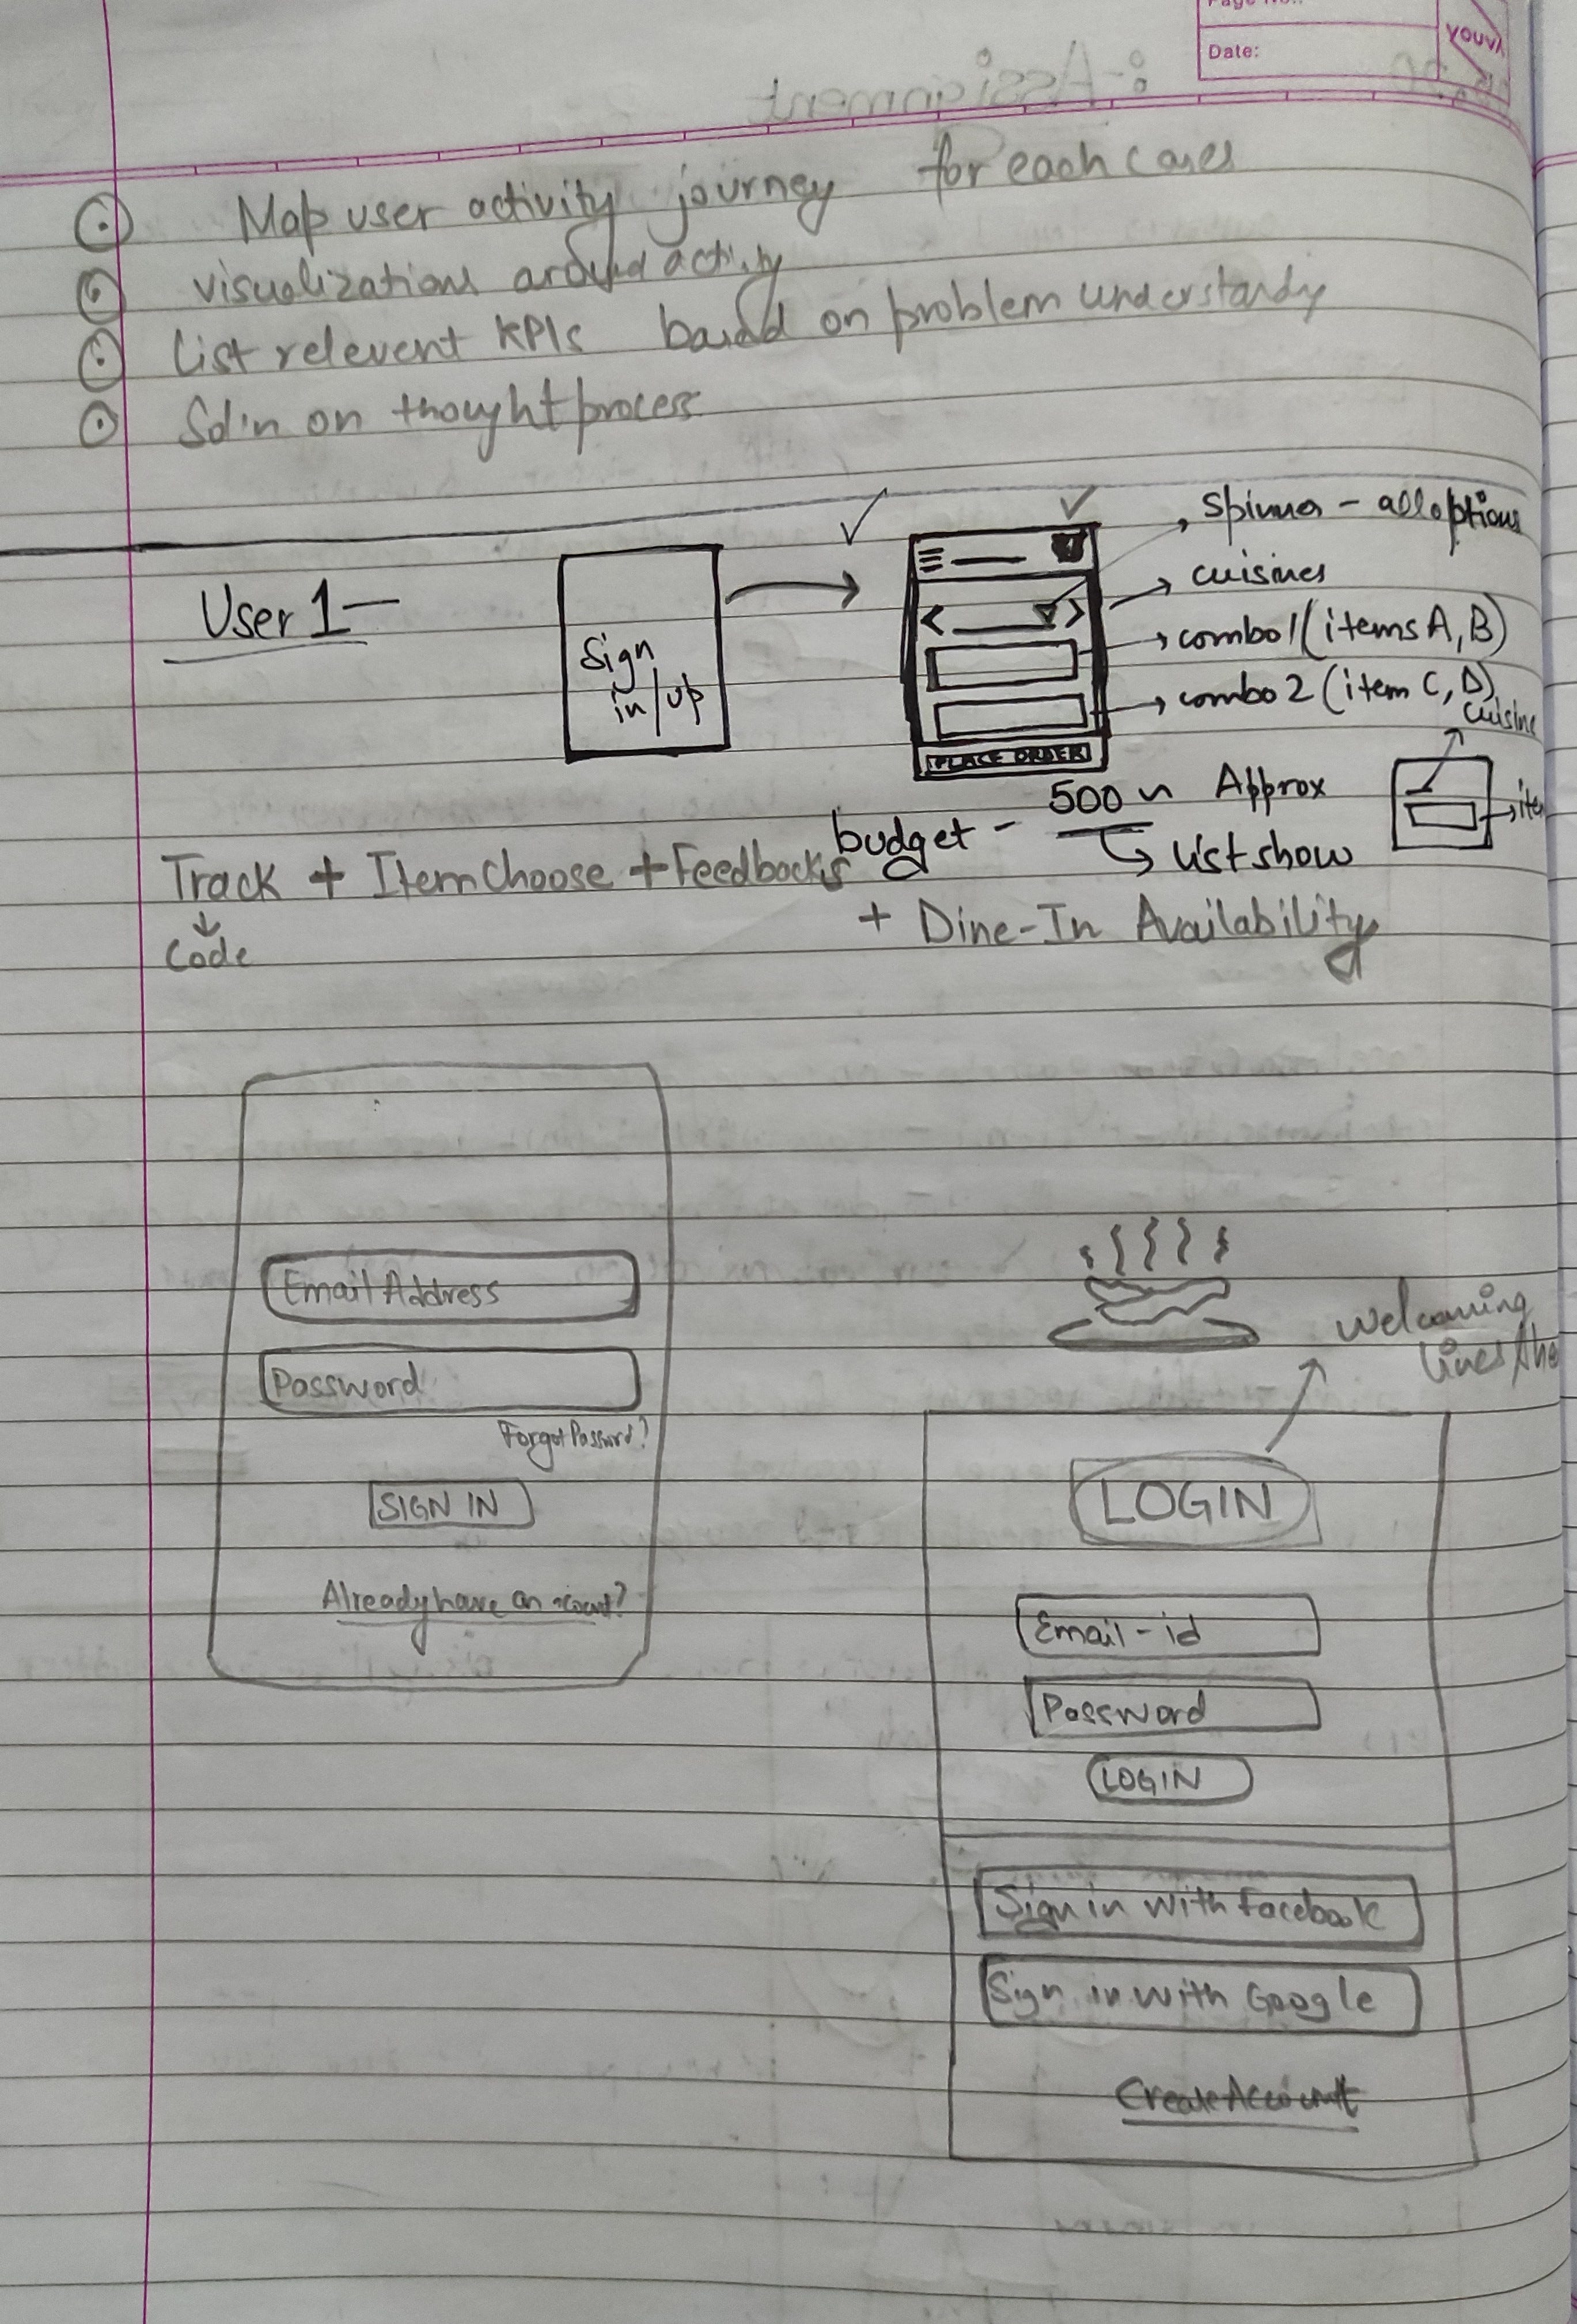 Page No.:
Date:
YOUVA
:-Assignment
Map user activity journey for each cases
visualizations around activity
List relevent KPIs based on problem understandy
Sol'n on thought process
User 1 —
Sign
in/up
spinner - all options
cuisines
combo 1 (items A, B)
combo 2 (item C, D)
PLACE ORDER
cuisine
budget - 500 Approx
list show
Track + Item Choose + Feedbacks
+ Dine-In Availability
Code
Email Address
Password
Forgot Password?
SIGN IN
Already have an account?
Welcoming
lines
LOGIN
Email-id
Password
LOGIN
Sign in with Facebook
Sign in with Google
Create Account